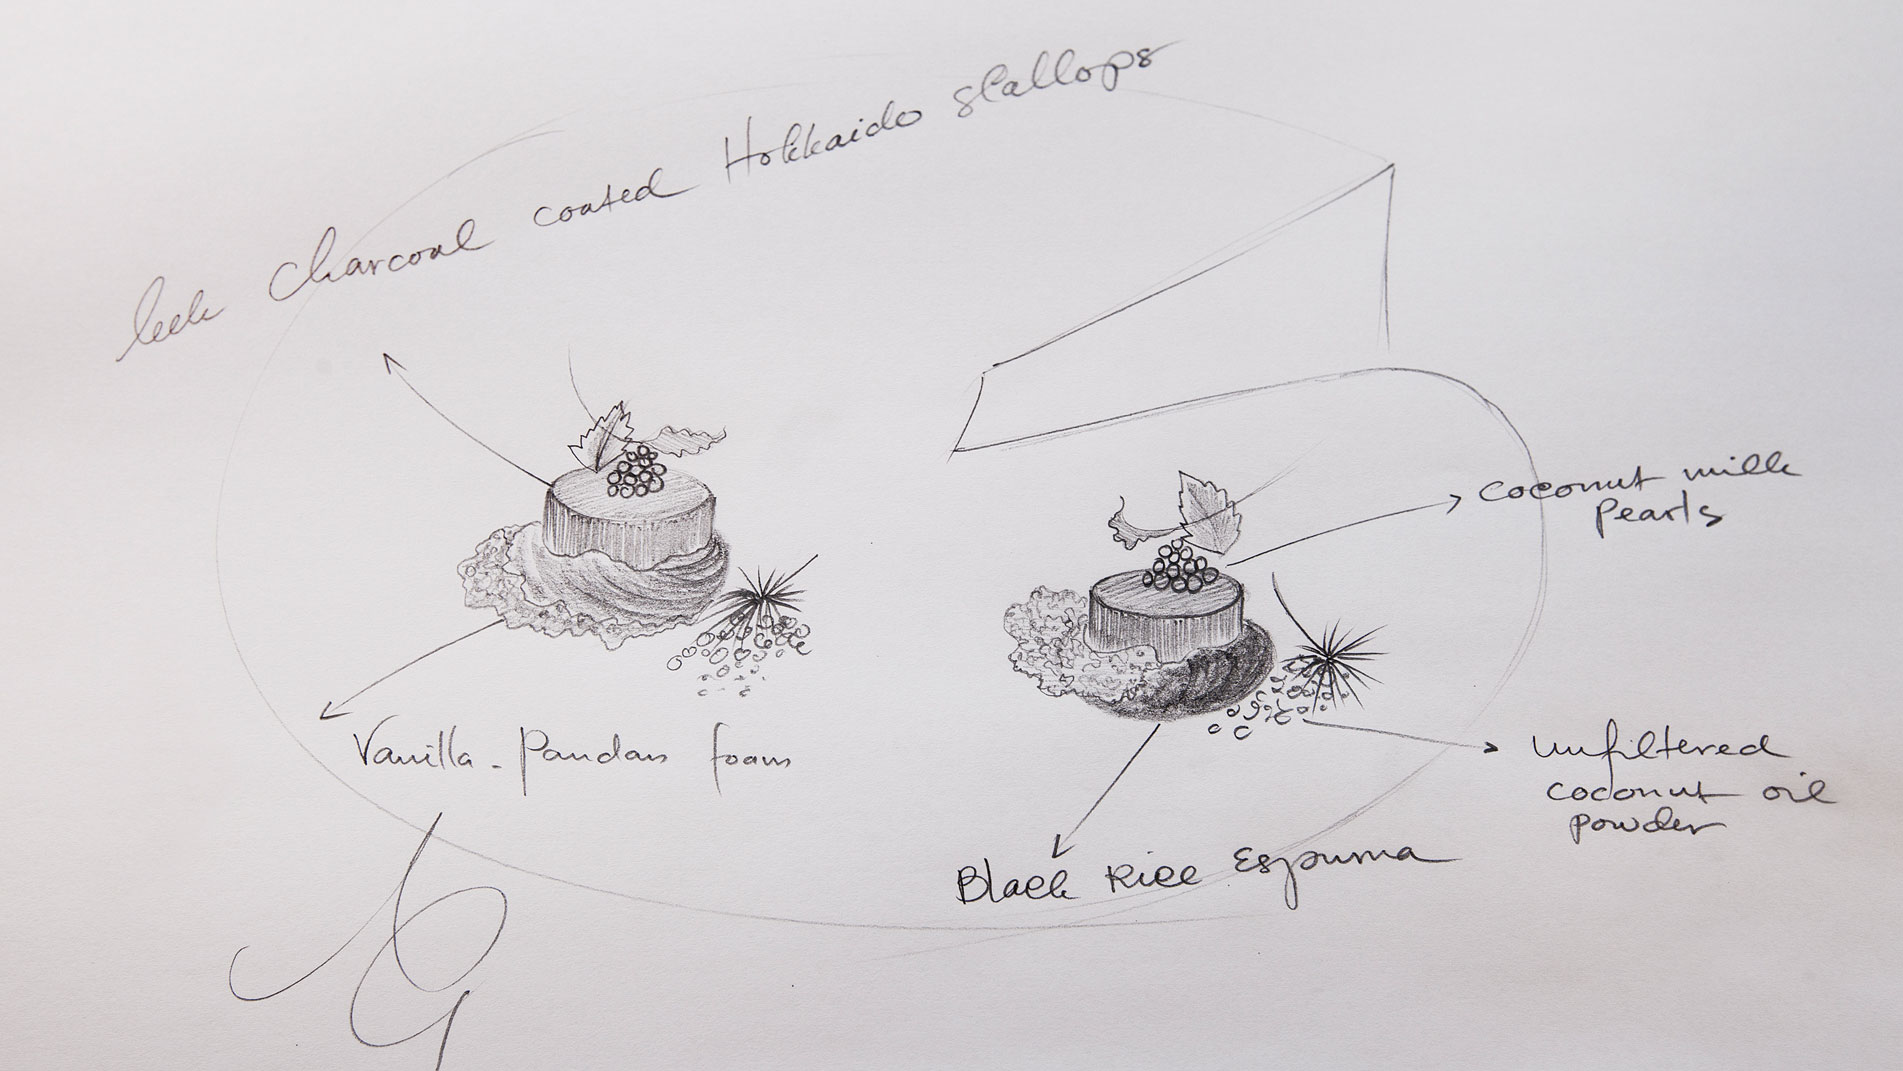 leek charcoal coated Hokkaido scallops
Coconut milk
Pearls
Vanilla - Pandan foam
unfiltered
coconut oil
powder
Black Rice Espuma